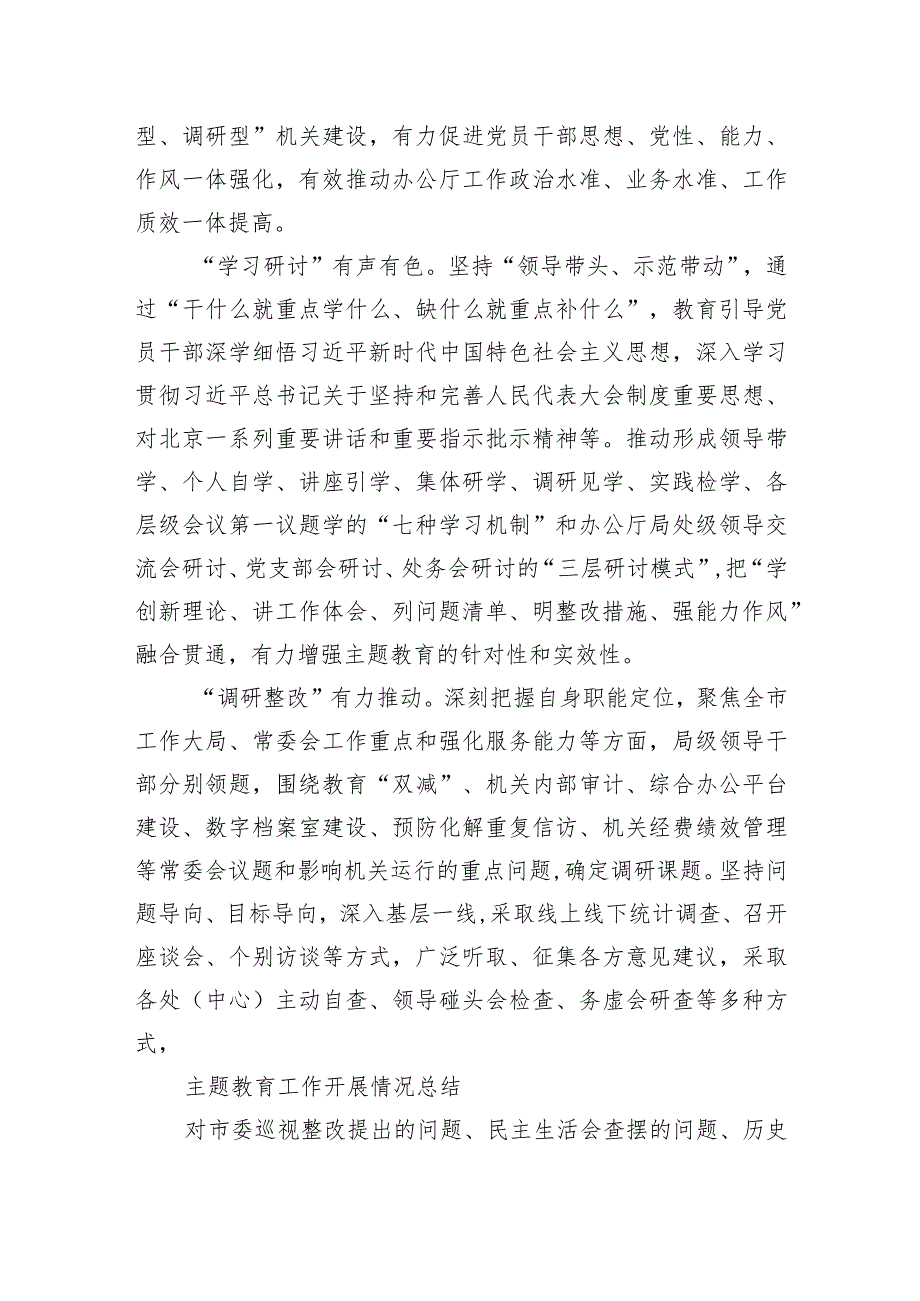 型、调研型”机关建设，有力促进党员干部思想、党性、能力、
作风一体强化，有效推动办公厅工作政治水准、业务水准、工作
质效一体提高。
“学习研讨”有声有色。坚持“领导带头、示范带动”，通
过“干什么就重点学什么、缺什么就重点补什么”，教育引导党
员干部深学细悟习近平新时代中国特色社会主义思想，深入学习
贯彻习近平总书记关于坚持和完善人民代表大会制度重要思想、
对北京一系列重要讲话和重要指示批示精神等。推动形成领导带
学、个人自学、讲座引学、集体研学、调研见学、实践检学、各
层级会议第一议题学的“七种学习机制”和办公厅局处级领导交
流会研讨、党支部会研讨、处务会研讨的“三层研讨模式”,把“学
创新理论、讲工作体会、列问题清单、明整改措施、强能力作风”
融合贯通，有力增强主题教育的针对性和实效性。
“调研整改”有力推动。深刻把握自身职能定位，聚焦全市
工作大局、常委会工作重点和强化服务能力等方面，局级领导干
部分别领题，围绕教育“双减”、机关内部审计、综合办公平台
建设、数字档案室建设、预防化解重复信访、机关经费绩效管理
等常委会议题和影响机关运行的重点问题,确定调研课题。坚持问
题导向、目标导向，深入基层一线,采取线上线下统计调查、召开
座谈会、个别访谈等方式，广泛听取、征集各方意见建议，采取
各处（中心）主动自查、领导碰头会检查、务虚会研查等多种方
式，
主题教育工作开展情况总结
对市委巡视整改提出的问题、民主生活会查摆的问题、历史